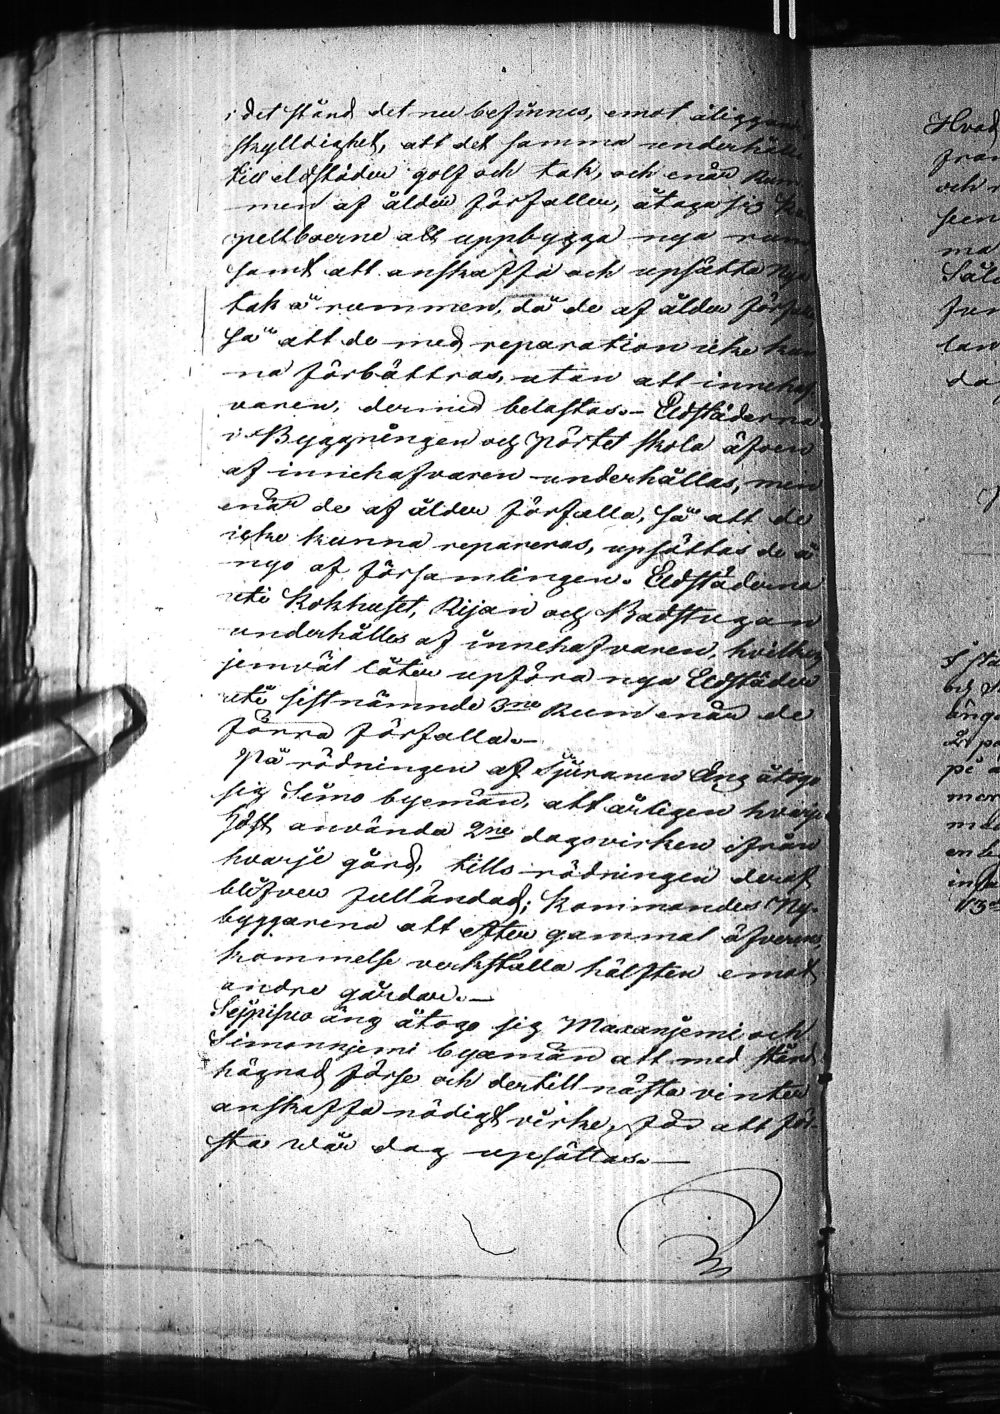 i det stånd det nu befinnes, emot åliggan
skylldighet, att det samma underhålla
till eldstäder golf och tak, och enär Rum
men af ålder förfaller, åtaga sig Ka
pellboerne att uppbygga nya rum
samt att anskaffa och upsätta nya
tak å rummen, då de af ålder förfalla
så att de med reparation icke kun
na förbättras, utan att innehaf
varen, dermed belastas.— Eldstäderna
i Byggningen och Pörtet skola äfven
af innehafvaren underhållas, men
enär de af ålder förfalla, så att de
icke kunna repareras, upsättas de å
nyo af församlingen. Eldstäderna
uti Kokhuset, Rijan och Badstugan
underhålles af innehafvaren, hvilken
jemväl låter upföra nya Eldstäder
uti sistnämnde 3ne Rum enär de
förra förfalla.—
På rödningen af Sjuranen Äng åtogo
sig Simo byemän, att årligen hvarje
höst använda 2ne dagsvirken ifrån
hvarje gård, tills rödningen deraf
blifver fulländad; Kommandes Ny-
byggarena att efter gammal öfverens
kommelse verkställa hälften emot
andre gårdar.—
äng åtogo sig Maxanjemi och
Simonnjemi byamän att med stäng
hägnad förse och dertill nästa vinter
anskaffa nödigt virke, för att för-
sta wår dag upsättas.—
Hvad
fra
och
ma
lan
da